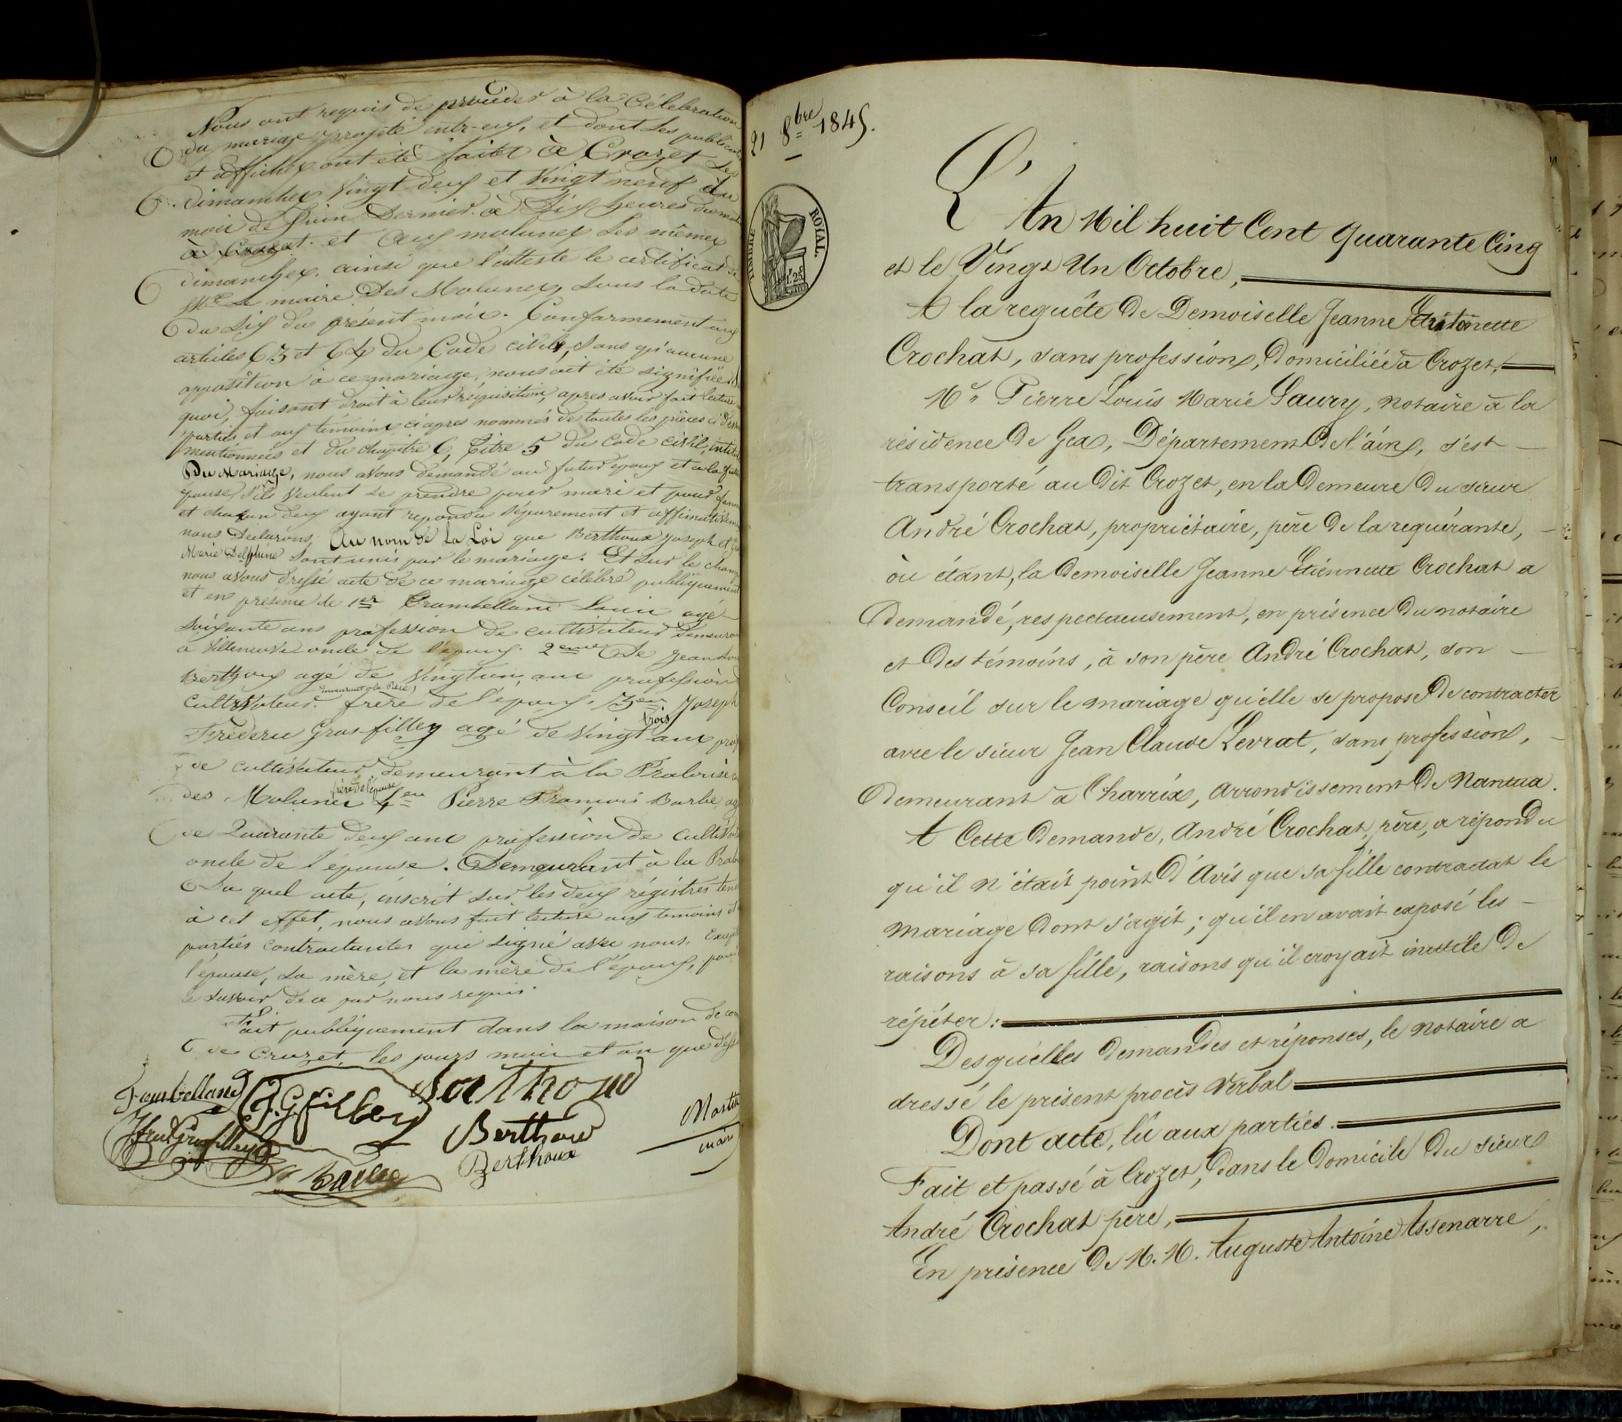 Nous ont requis de procéder à la Célébration
du mariage projeté entr-eux, et dont les
et affiches ont été faites à Crozet les
dimanches Vingt deux et Vingt neuf du
mois de Juin Dernier à Dix heures du
à Crozet et aux molunes les mêmes
dimanches. ainsi que l'atteste le certificat
Mr le maire Des Molunes, sous la date
du Six du présent mois. Conformement aux
articles 63 et 64 du Code civil, Sans qu'aucune
opposition à ce mariage, nous ait été signifiée
quoi, faisant droit à leur réquisition, apres avoir fait lecture
parties et aux témoins ci apres nommés de toutes les pièces ci
mentionnées et du chapitre 6, titre 5 du Code civil,
Du Mariage, nous avons demandé au futur époux et à la
épouse s'ils veulent se prendre pour mari et pour
et chacun d'eux ayant repondu séparement et
nous declarons, Au nom de La Loi que Berthoux Joseph et
Marie Delphine Sont unis par le mariage. Et sur le champ
nous avons dressé acte de ce mariage célébré publiquement
et en présence de 1er agé
Soixante ans profession de cultivateur
à Villeneuve oncle de l'époux. 2eme de
Berthoux agé de Vingt un ans profession
Cultivateur frère de l'époux. 3eme Joseph
Frederic Gros filley agé de Vingt trois ans
de cultivateur, demeurant à la
des Molunes frère de l'épouse 4eme Pierre François Barbe
de Quarante deux ans profession de
oncle de l'épouse. Demeurant à la
Du quel acte, inscrit sur les deux régistres
à cet effet, nous avons fait lecture aux temoins
parties contractantes qui signé avec nous.
l'épouse, sa mère, et la mère de l'époux,
le savoir de ce par nous requis.
Fait publiquement dans la maison
de Crozet, les jours mois et an que
J.G.filley
Berthoux
Berthoux
Barbe
21 8bre 1845.
TIMBRE ROYAL.
L'An Mil huit Cent Quarante Cinq
et le Vingt Un Octobre,
A la requête De Demoiselle Jeanne Etiennette
Crochat, sans profession, Domiciliée à Crozet,
Me Pierre Louis Marie Gaury, notaire à la
résidence De Gex, Département De l'ain, s'est
transporté au Dit Crozet, en la Demeure Du sieur
André Crochat, propriétaire, père De la requérante,
où étant, la Demoiselle Jeanne Etiennette Crochat a
Demandé, respectueusement, en présence Du notaire
et Des témoins, à son père André Crochat, son
Conseil sur le mariage qu'elle se propose De contracter
avec le sieur Jean Claude Levrat, sans profession,
Demeurant à Charrix, arrondissement De Nantua.
A Cette Demande, André Crochat, père, a répondu
qu'il n'était point D'Avis que sa fille contractat le
mariage Dont s'agit; qu'il en avait exposé les
raisons à sa fille, raisons qu'il croyait inutile De
répéter:
Desquelles Demandes et réponses, le Notaire a
dressé le présent procès Verbal
Dont acte, lu aux parties.
Fait et passé à Crozet, Dans le Domicile Du sieur
André Crochat père,
En présence De M.M. Auguste Antoine Assenarre,